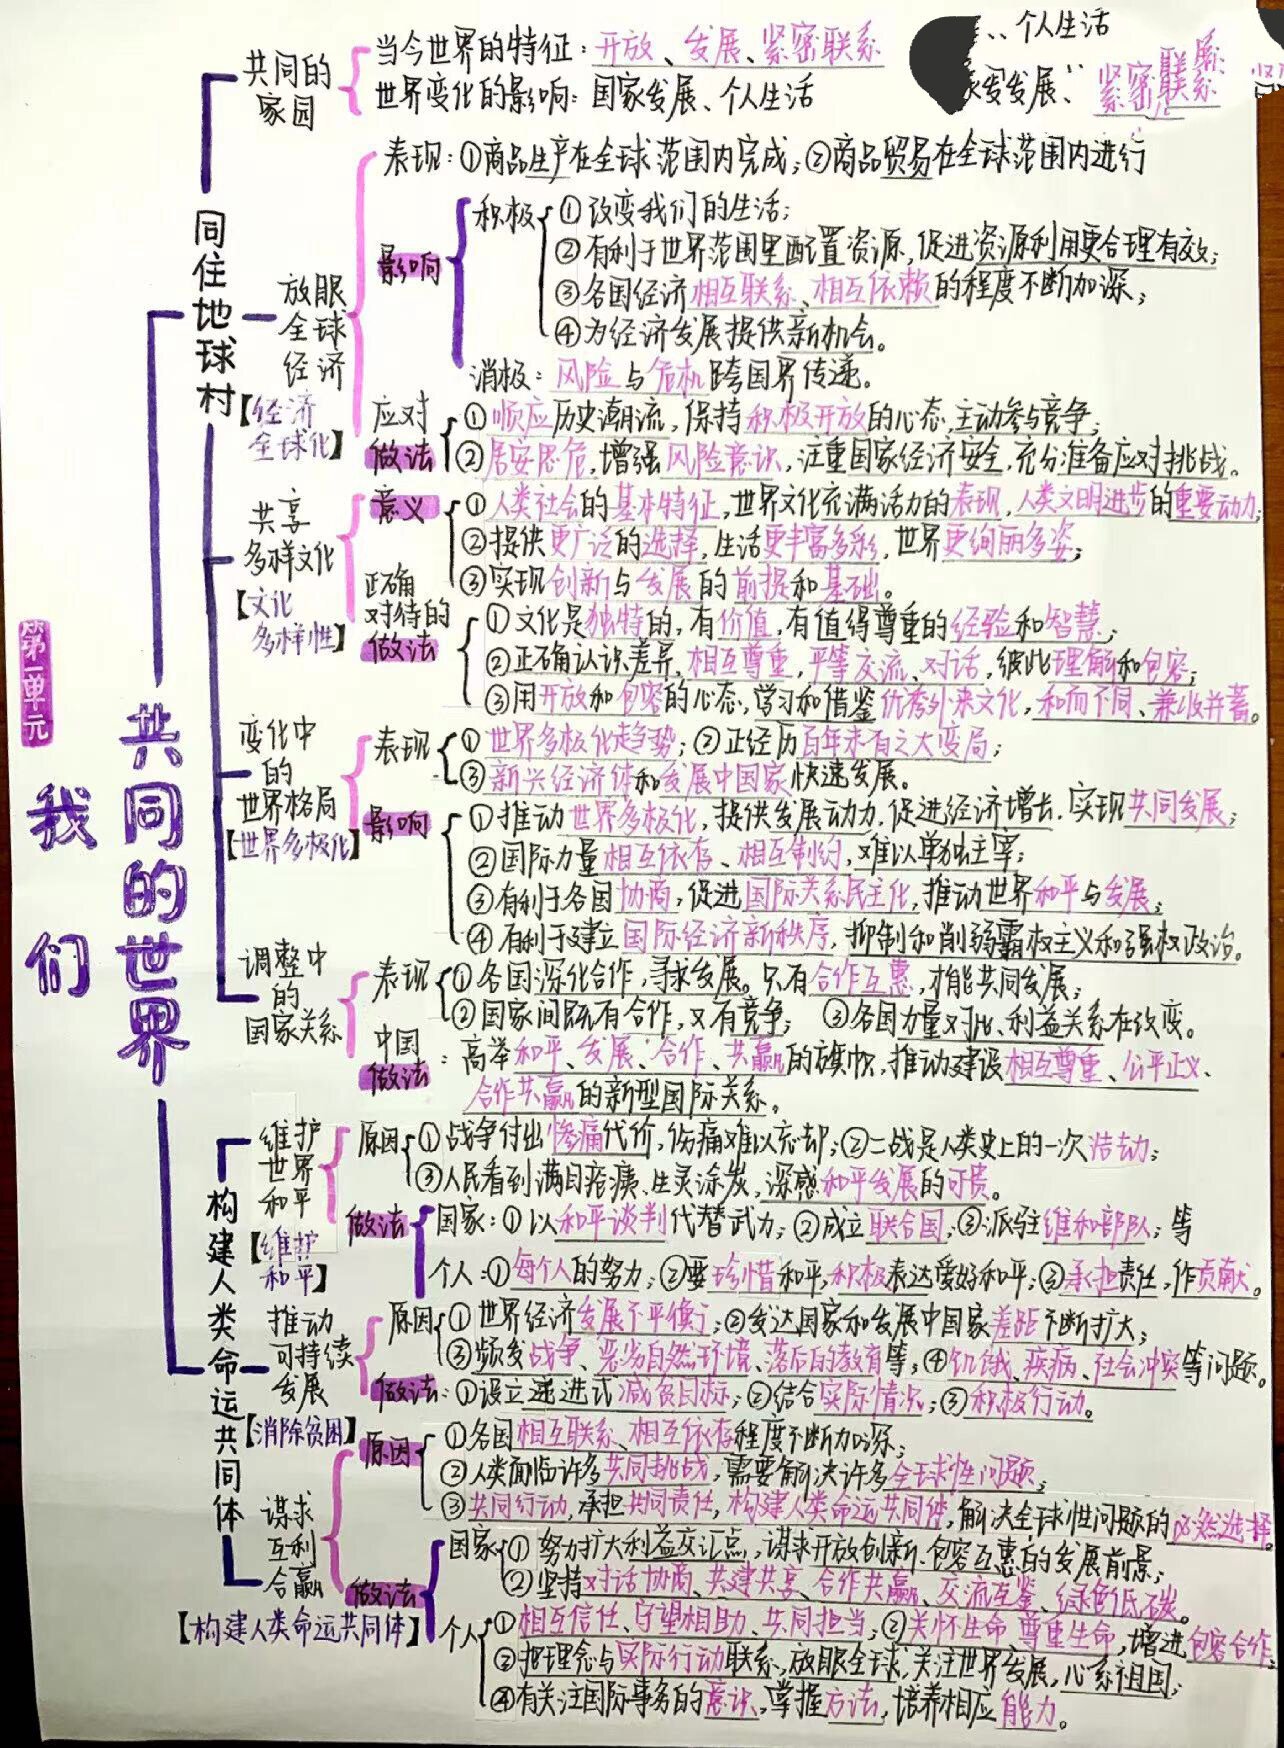 第一单元
我们
共同的世界
同住地球村
共同的
家园
当今世界的特征：开放、发展、紧密联系
世界变化的影响：国家发展、个人生活
、个人生活
发展、紧密联系
放眼
全球
经济
【经济
全球化】
表现：①商品生产在全球范围内完成；②商品贸易在全球范围内进行
影响
积极
①改变我们的生活；
②有利于世界范围里配置资源，促进资源利用更合理有效；
③各国经济相互联系、相互依赖的程度不断加深；
④为经济发展提供新机会。
消极：风险与危机跨国界传递。
应对
做法
①顺应历史潮流，保持积极开放的心态，主动参与竞争；
②居安思危，增强风险意识，注重国家经济安全，充分准备应对挑战。
共享
多样文化
【文化
多样性】
意义
①人类社会的基本特征，世界文化充满活力的表现，人类文明进步的重要动力；
②提供更广泛的选择，生活更丰富多彩，世界更绚丽多姿；
③实现创新与发展的前提和基础。
正确
对待的
做法
①文化是独特的，有价值，有值得尊重的经验和智慧；
②正确认识差异、相互尊重，平等交流、对话，彼此理解和包容；
③用开放和包容的心态，学习和借鉴优秀外来文化，和而不同、兼收并蓄。
变化中
的
世界格局
【世界多极化】
表现
①世界多极化趋势；②正经历百年未有之大变局；
③新兴经济体和发展中国家快速发展。
影响
①推动世界多极化，提供发展动力，促进经济增长，实现共同发展；
②国际力量相互依存、相互制约，难以单独主宰；
③有利于各国协商，促进国际关系民主化，推动世界和平与发展；
④有利于建立国际经济新秩序，抑制和削弱霸权主义和强权政治。
调整中
的
国家关系
表现
①各国深化合作，寻求发展。只有合作互惠，才能共同发展；
②国家间既有合作，又有竞争；③各国力量对比、利益关系在改变。
中国
做法
：高举和平、发展、合作、共赢的旗帜，推动建设相互尊重、公平正义、
合作共赢的新型国际关系。
构建人类命运共同体
维护
世界
和平
【维护
和平】
原因
①战争付出惨痛代价，伤痛难以忘却；②二战是人类史上的一次浩劫；
③人民看到满目疮痍、生灵涂炭，深感和平发展的可贵。
做法
国家：①以和平谈判代替武力；②成立联合国；③派驻维和部队；等
个人：①每个人的努力；②要珍惜和平，积极表达爱好和平；③承担责任，作贡献。
推动
可持续
发展
【消除贫困】
原因
①世界经济发展不平衡；②发达国家和发展中国家差距不断扩大；
③频发战争、恶劣自然环境、落后的教育等；④饥饿、疾病、社会冲突等问题。
做法：①设立递进式减贫目标；②结合实际情况；③积极行动。
谋求
互利
合赢
【构建人类命运共同体】
原因
①各国相互联系、相互依存程度不断加深；
②人类面临许多共同挑战，需要解决许多全球性问题；
③共同行动，承担共同责任，构建人类命运共同体，解决全球性问题的必然选择。
做法
国家
①努力扩大利益交汇点，谋求开放创新、包容互惠的发展前景；
②坚持对话协商、共建共享、合作共赢、交流互鉴、绿色低碳。
个人
①相互信任、守望相助、共同担当；②关怀生命，尊重生命，增进包容合作；
③把理念与实际行动联系，放眼全球，关注世界发展，心系祖国；
④有关注国际事务的意识，掌握方法，培养相应能力。